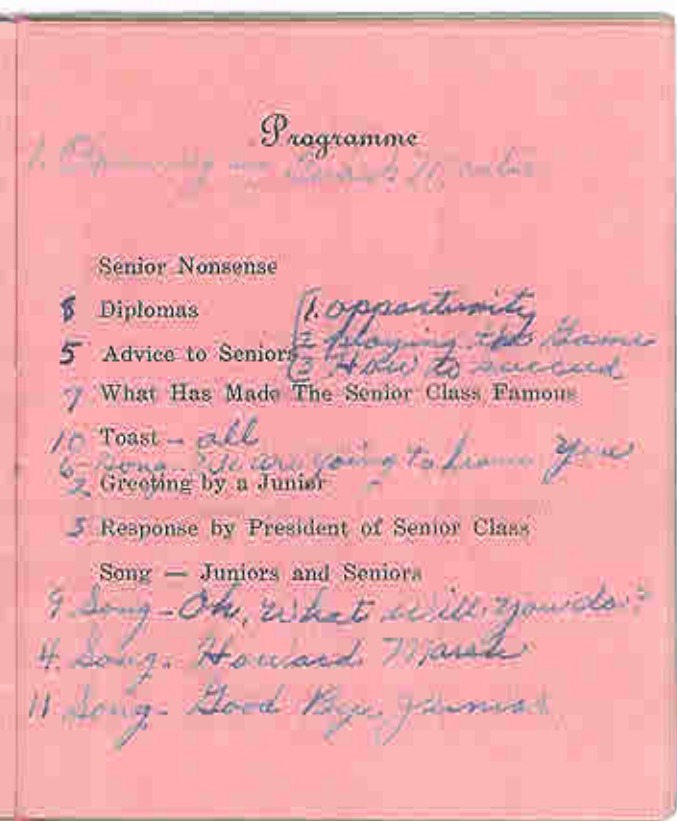 Programme
1. Opening —
Senior Nonsense
8 Diplomas (1. opportunity
5 Advice to Seniors (2 playing the Game
(3 How to succeed
7 What Has Made The Senior Class Famous
10 Toast – all
6 Song - We are going to leave you
2 Greeting by a Junior
3 Response by President of Senior Class
Song — Juniors and Seniors
9 Song - Oh, What will you do?
4. Song. Howard Marsh
11 Song - Good Bye, Juniors